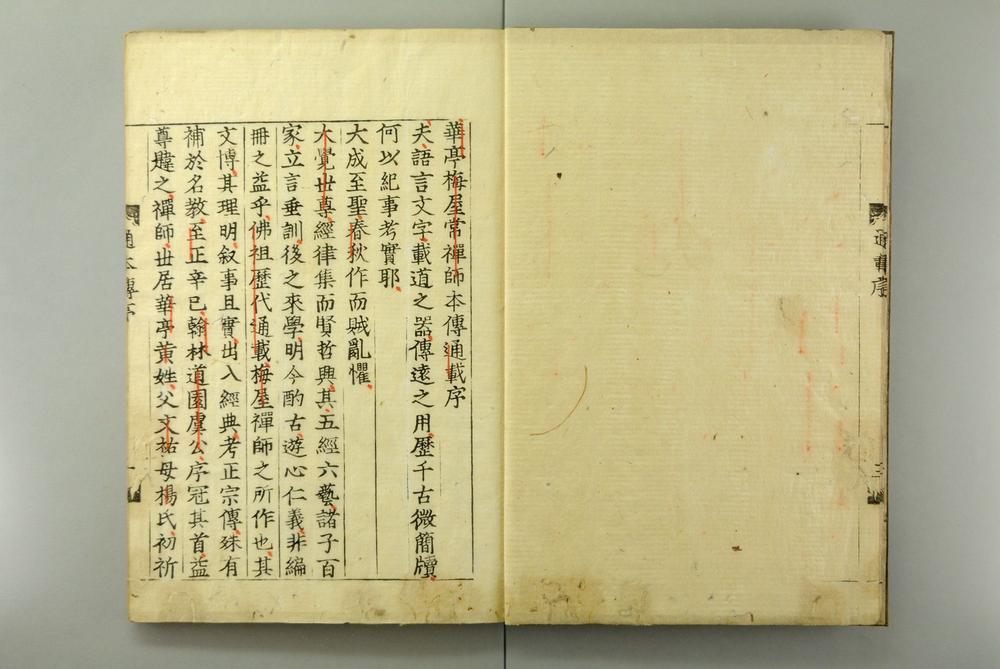 華亭梅屋常禪師本傳通載序
夫語言文字載道之器傳遠之用歷千古微簡牘
何以紀事考實耶
大成至聖春秋作而賊亂懼
大覺世尊經律集而賢哲興其五經六藝諸子百
家立言垂訓後之來學明今酌古遊心仁義非編
冊之益乎佛祖歷代通載梅屋禪師之所作也其
文博其理明叙事且實出入經典考正宗傳殊有
補於名教至正辛巳翰林道園虞公序冠其首益
尊韙之禪師世居華亭黃姓父文祐母楊氏初祈
通本傳序
通載序
三